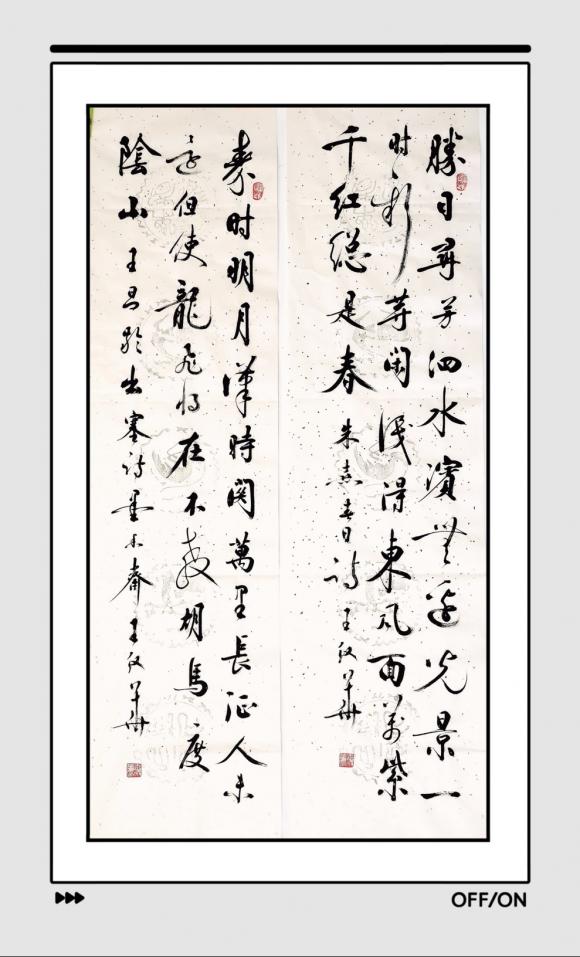 勝日尋芳泗水濱無邊光景一
时新等閑識得東風面萬紫
千紅總是春 朱熹春日詩 王華
秦时明月漢時関萬里長征人未
還但使龍飛将在不教胡馬度
陰山 王昌齡出塞詩 墨齋王華
OFF/ON